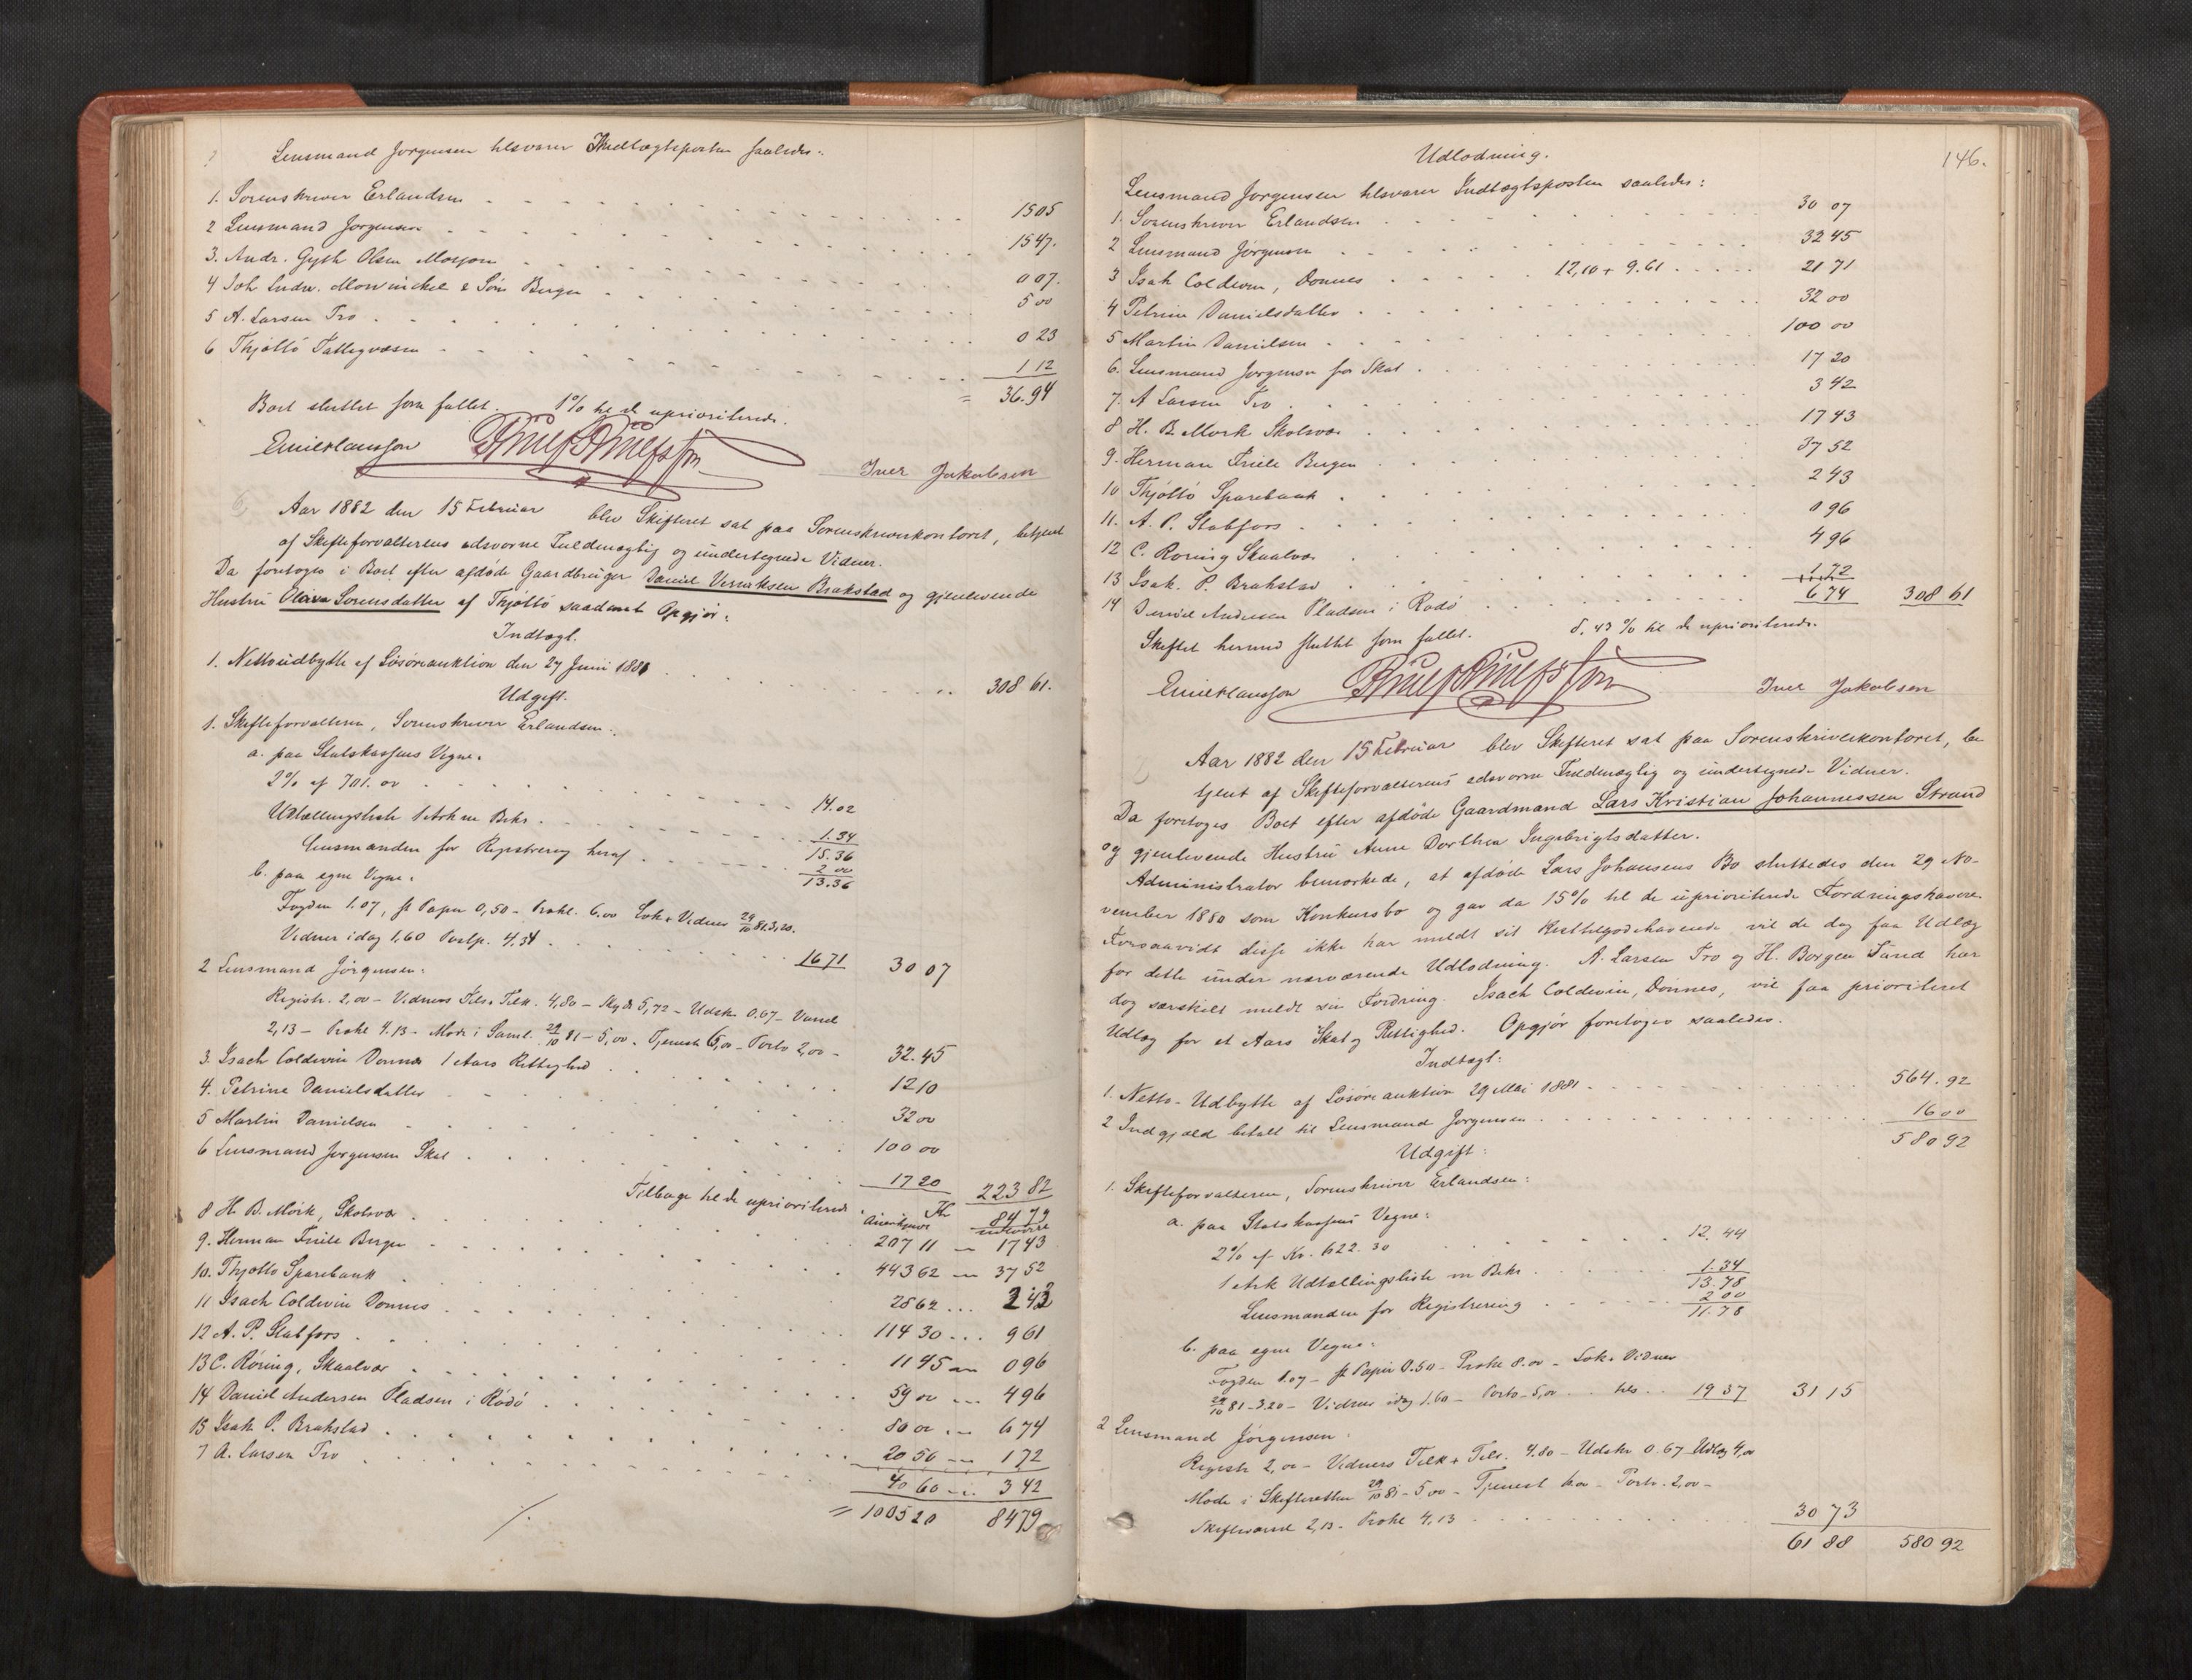 Lensmand Jørgensen tilsvarer Indtægtsposten saaledes:
1. Sorenskriver Erlandsen 15 05
2 Lensmand Jørgensen 15 47.
3. Andr. Gysk Olsen Mosjøen 0 07.
4 Joh Ludw. Mowinckel & Søn Bergen 5 00
5 A. Larsen Tro 0 23
6 Thjøttø Fattigvæsen 1 12
= 36.94
Boet sluttet som fallet. 1% til de uprioriterede.
Iver Jakobsen
Aar 1882 den 15 Februar blev Skifteret sat paa Sorenskriverkontoret, betjent
af Skifteforvalterens edsvorne Fuldmægtig og undertegnede Vidner.
Da foretoges i Boet efter afdøde Gaardbruger Daniel Brakstad og gjenlevende
Hustru Sørensdatter af Thjøttø saadant Opgjør:
Indtægt.
1. Nettoudbytte af Løsøreauktion den 27 Juni 1881 308 61.
Udgift.
1. Skifteforvalteren, Sorenskriver Erlandsen:
a. paa Statskassens Vegne.
2% af 701. 00 14.02
Udtællingsliste 1 Ark m Bekr. 1.34
15.36
Lensmanden for Registrering heraf 2 00
13.36
b. paa egne Vegne.
Fogden 1.07, st Papir 0,50 - Prokl. 6.00 Lok + Vidner 29/10 81 3,20.
Vidner idag 1,60 Portp. 4.34 16 71 30 07
2 Lensmand Jørgensen:
Registr. 2,00 - Vidners Tils. Tilk. 4,80 - Skyds 5,72 - Udskr. 0.67 - Varsel
2,13 - Prokl 4.13 - Møde i Saml. 29/10 81 - 5,00. Tjeneste 6,00 - Porto 2,00 - 32.45
3. Isach Coldevin Dønnes 1 Aars Rettighed 12 10
4. Petrine Danielsdatter 32 00
5 Martin Danielsen 100 00
6 Lensmand Jørgensen Skat 17 20 223 82
Tilbage til de uprioriterede Kr 84 79
8 H. B. Mørk, Skalsvær 207 11 - 17 43
9. Herman Friele Bergen 443 62 - 37 52
10. Thjøttø Sparebank 28 62 ... 2 43
11 Isach Coldevin Dønnes 114 30 ... 9 61
12 A. P. Stabfors 11 45 - 0 96
13 C. Røring, Skaalvær 59 00 - 4 96
14 Daniel Andersen Pladsen i Rødø 80 00 - 6 74
15 Isak P. Brakstad 20 50 - 1 72
7 A. Larsen Tro 40 60 - 3 42
= 1005 20 84 79
146.
Udlodning.
Lensmand Jørgensen tilsvarer Indtægtsposten saaledes:
1. Sorenskriver Erlandsen 30 07
2 Lensmand Jørgensen 32 45
3 Isak Coldevin, Dønnes 12,10 + 9.61 21 71
4 Petrine Danielsdatter 32 00
5 Martin Danielsen 100 00
6. Lensmand Jørgensen for Skat 17 20
7. A Larsen Tro 3 42
8 H. B. Mørk Skalsvær 17 43
9. Herman Friele Bergen 37 52
10 Thjøttø Sparebank 2 43
11. A. P. Stabfors 0 96
12 C. Roring Skaalvær 4 96
13 Isak. P. Brakstad 1 72
14 Daniel Andersen Pladsen i Rødø 6 74 308 61
Skiftet hermed sluttet som fallet. 8, 43 % til de uprioriterede.
Iver Jakobsen
Aar 1882 den 15 Februar blev Skifteret sat paa Sorenskriverkontoret, be
tjent af Skifteforvalterens edsvorne Fuldmægtig og undertegnede Vidner.
Da foretoges Boet efter afdøde Gaardmand Lars Kristian Johannessen Strand
og gjenlevende Hustru Anne Dorthea Ingebrigtsdatter.
Administrator bemærkede, at afdøde Lars Johansens Bo sluttedes den 29 No-
vember 1880 som Konkursbo og gav da 15% til de uprioriterede Fordringshavere.
Forsaavidt disse ikke har meldt sit Resttilgodehavende vil de dog faa Udlæg
for dette under nærværende Udlodning. A. Larsen Tro og H. Borgen Sund har
dog særskilt meldt sin Fordring. Isach Coldevin, Dønnes, vil faa prioriteret
Udlæg for et Aars Skat og Rettighed. Opgjør foretoges saaledes.
Indtægt:
1. Netto-Udbytte af Løsøreauktion 29 Mai 1881 564. 92
2 Indgjæld betalt til Lensmand Jørgensen 16 00
580 92
Udgift:
1. Skifteforvalteren, Sorenskriver Erlandsen:
a. paa Statskassens Vegne:
2% af Kr. 622. 30 12. 44
1 Ark Udtællingsliste m Bekr. 1.34
13.78
Lensmanden for Registrering 2 00
11.78
b. paa egne Vegne:
Fogden 1.07 - st Papir 0.50 - Prokl 8.00 - Lok. Vidner
29/10 81 - 3.20 - Vidner idag 1.60 - Porto - 5,00 tils. 19 37 31 15
2 Lensmand Jørgensen.
Registr 2,00 - Vidners Tilk + Tils. 4.80 - Udskr 0.67 Udlæg 4,00
Møde i Skifteretten 29/10 81 - 5 00 - Tjenest 6.00 - Porto. 2,00 -
Skiftevarsel 2,13 - Prokl 4,13 30 73
61 88 580 92